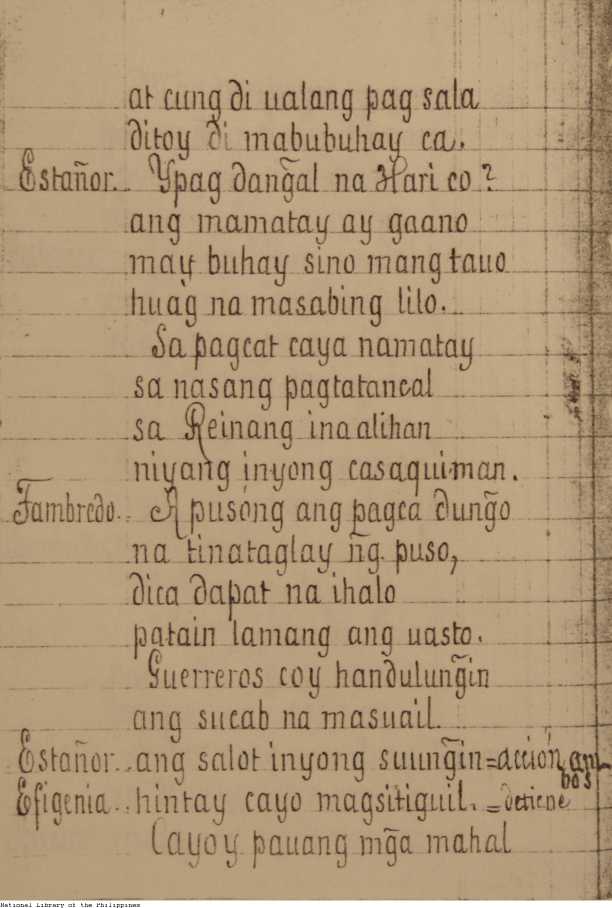 at cung di ualang pag sala
ditoy di mabubuhay ca.
Estañor.. Ypag dang̃al na Hari co?
ang mamatay ay gaano
may buhay sino mang tauo
huag na masabing lilo.
Sa pagcat caya namatay
sa nasang pagtatancal
sa Reinang ina alihan
niyang inyong casaquiman.
Fambredo.. A pusóng ang pagca dung̃o
na tinataglay ñg puso,
dica dapat na ihalo
patain lamang ang uasto.
Guerreros coy handulung̃in
ang sucab na masuail.
Estañor.. ang salot inyong suung̃in = acción am
bos
Efigenia.. hintay cayo magsitiguil. = detiene
Cayoy pauang mg̃a mahal
National Library of the Philippines